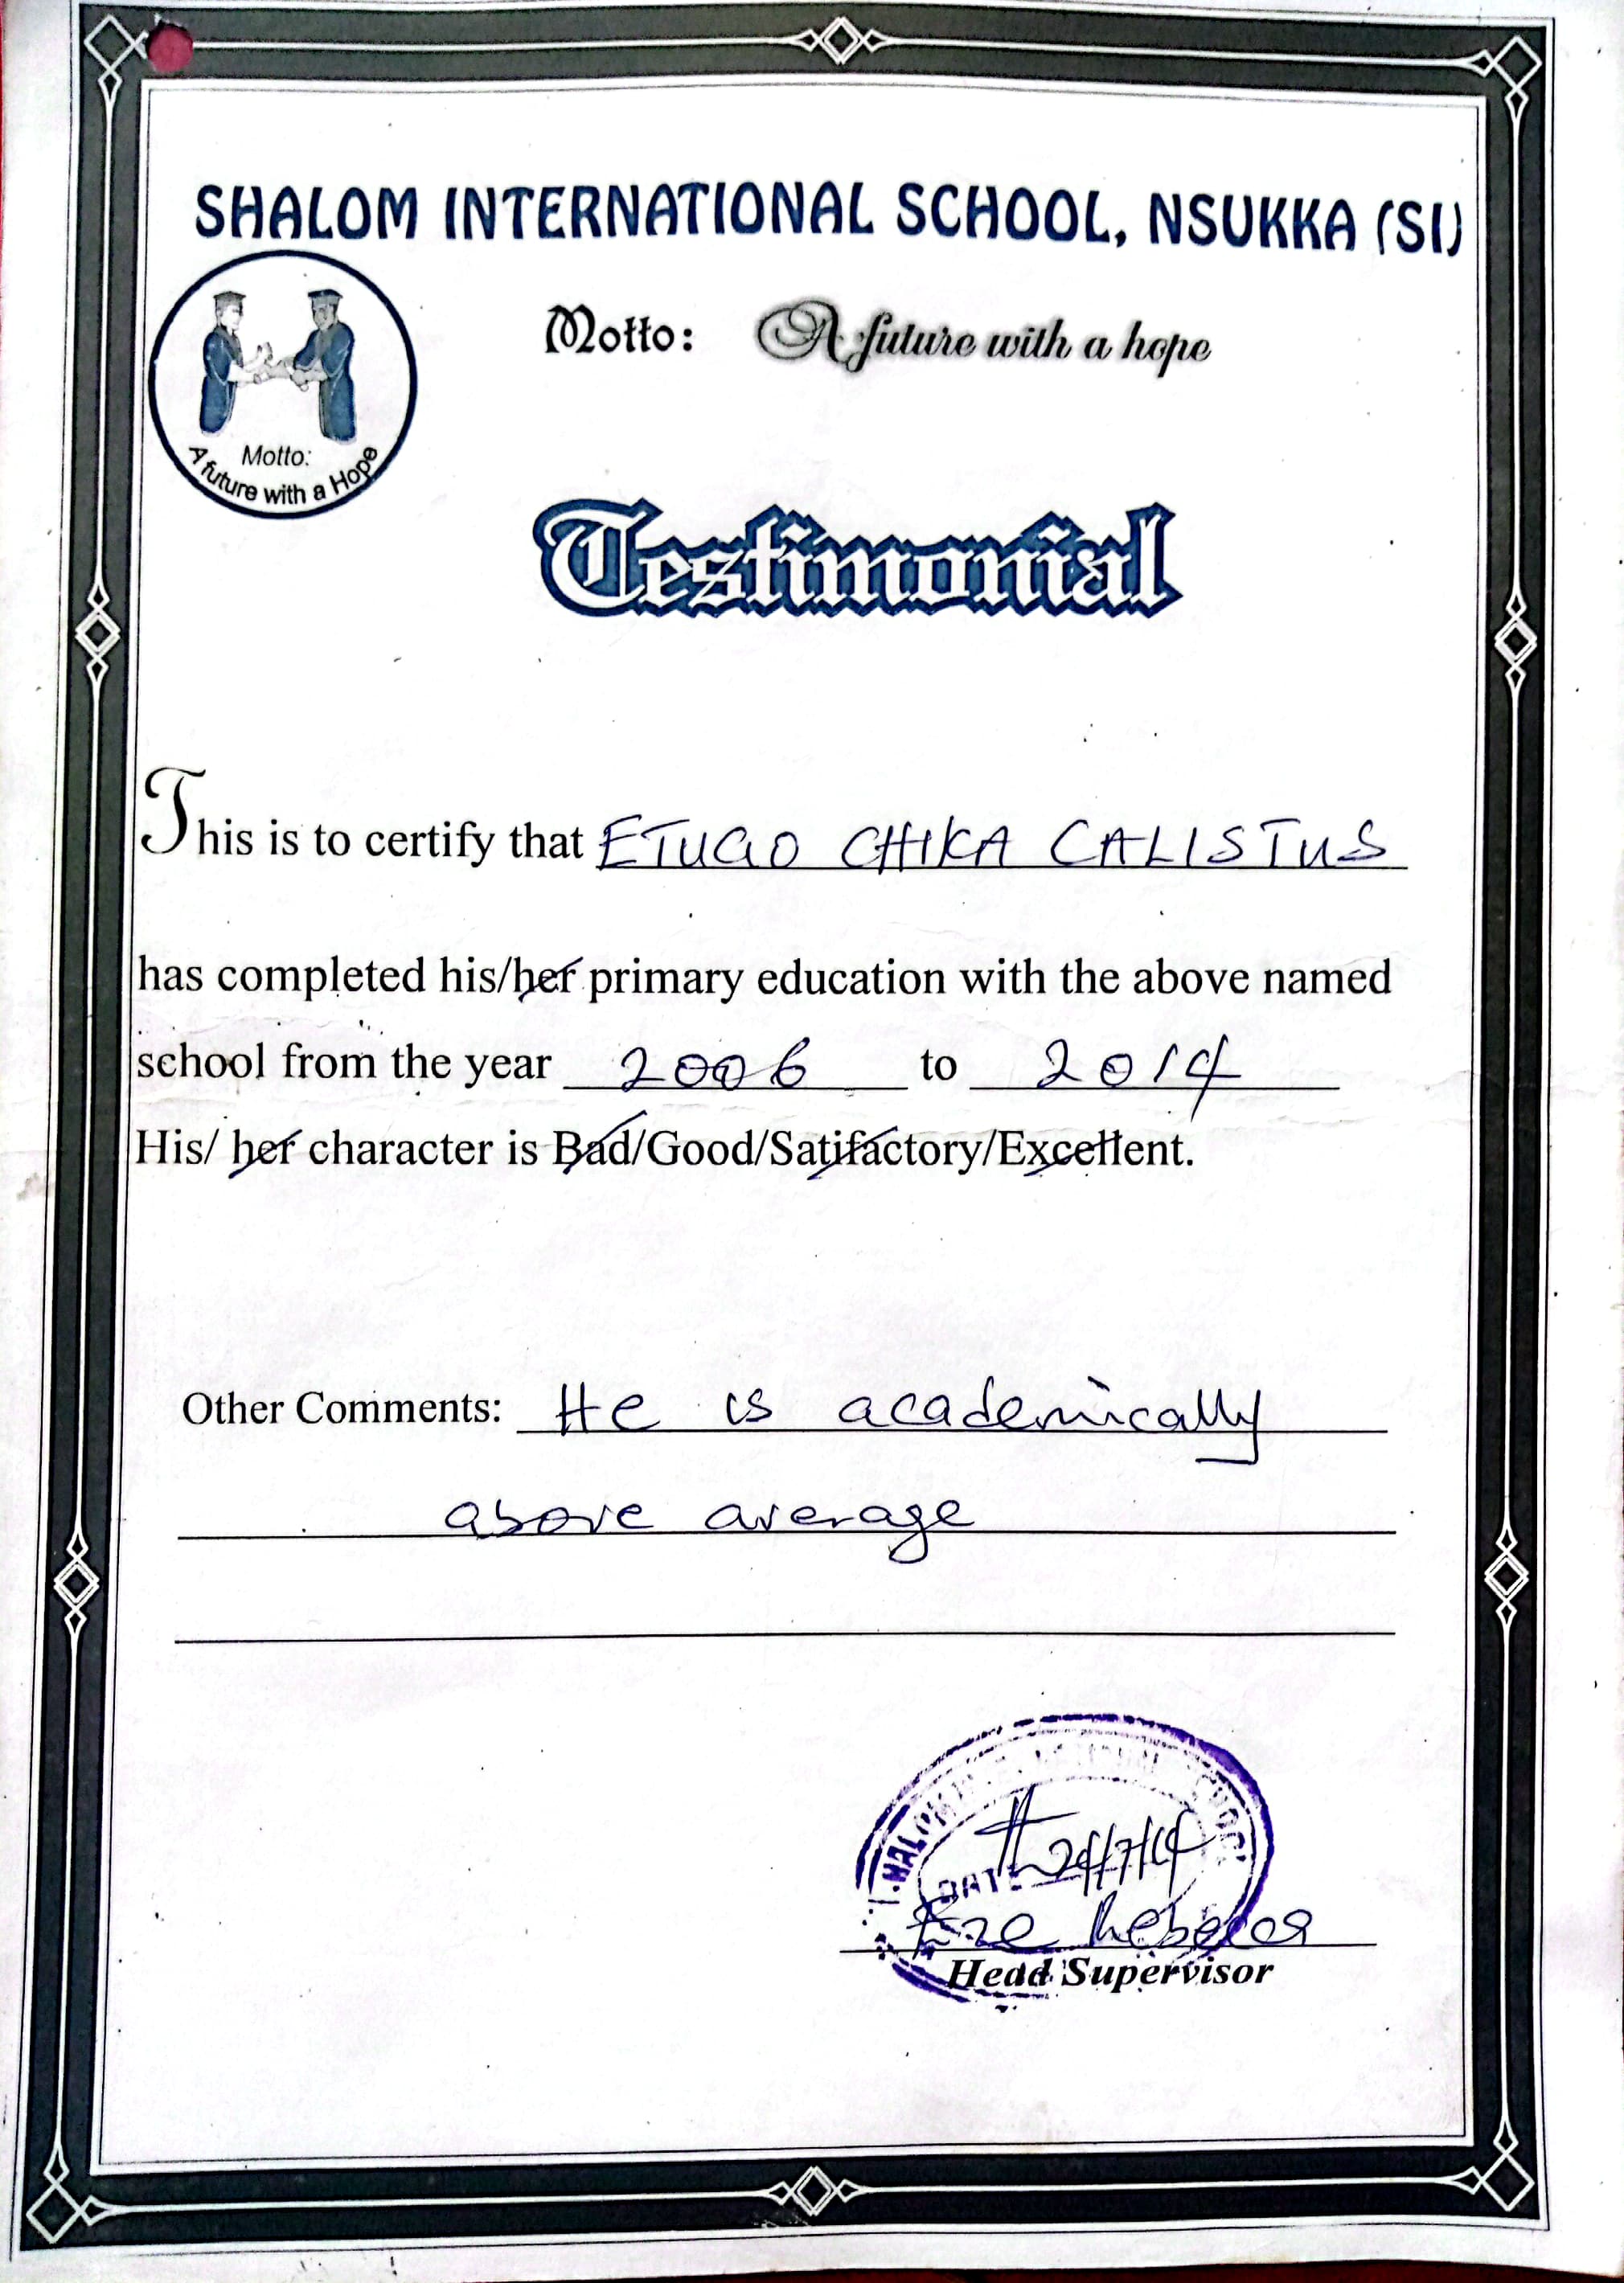 SHALOM INTERNATIONAL SCHOOL, NSUKKA (SI)
Motto: A future with a hope
Motto:
A future with a Hope
Testimonial
This is to certify that ETUGO CHIKA CALISTUS
has completed his/her primary education with the above named
school from the year 2006 to 2014
His/ her character is Bad/Good/Satifactory/Excellent.
Other Comments: He is academically
above average
DATE
Eze Rebecca
Head Supervisor